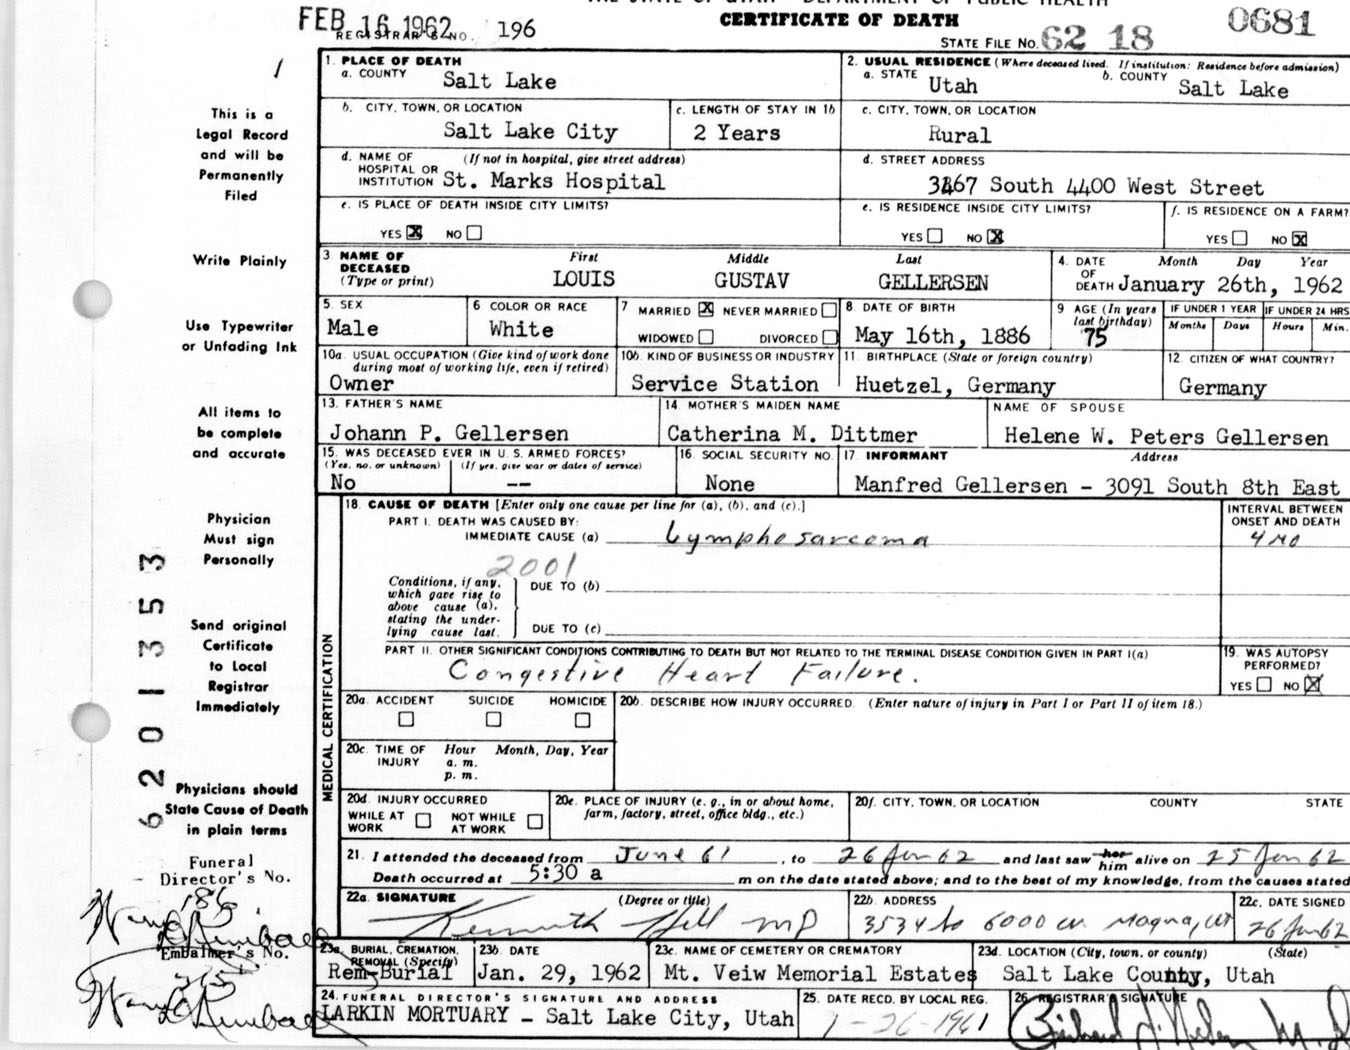 FEB 16 1962
REGISTRAR'S NO. 196
CERTIFICATE OF DEATH
STATE FILE No. 62 18 0681
This is a
Legal Record
and will be
Permanently
Filed
Write Plainly
Use Typewriter
or Unfading Ink
All items to
be complete
and accurate
Physician
Must sign
Personally
Send original
Certificate
to Local
Registrar
Immediately
Physicians should
State Cause of Death
in plain terms
Funeral
Director's No.
186
Embalmer's No.
6201353
1. PLACE OF DEATH
a. COUNTY Salt Lake
2. USUAL RESIDENCE (Where deceased lived. If institution: Residence before admission)
a. STATE Utah b. COUNTY Salt Lake
b. CITY, TOWN, OR LOCATION Salt Lake City
c. LENGTH OF STAY IN 1b 2 Years
c. CITY, TOWN, OR LOCATION Rural
d. NAME OF HOSPITAL OR INSTITUTION (If not in hospital, give street address) St. Marks Hospital
d. STREET ADDRESS 3467 South 4400 West Street
e. IS PLACE OF DEATH INSIDE CITY LIMITS?
YES X NO
e. IS RESIDENCE INSIDE CITY LIMITS?
YES NO X
f. IS RESIDENCE ON A FARM?
YES NO X
3. NAME OF DECEASED (Type or print) First LOUIS Middle GUSTAV Last GELLERSEN
4. DATE OF DEATH Month Day Year January 26th, 1962
5. SEX Male
6 COLOR OR RACE White
7 MARRIED X NEVER MARRIED
WIDOWED DIVORCED
8. DATE OF BIRTH May 16th, 1886
9 AGE (In years last birthday) 75
IF UNDER 1 YEAR Months Days
IF UNDER 24 HRS Hours Min.
10a. USUAL OCCUPATION (Give kind of work done during most of working life, even if retired) Owner
10b. KIND OF BUSINESS OR INDUSTRY Service Station
11. BIRTHPLACE (State or foreign country) Huetzel, Germany
12. CITIZEN OF WHAT COUNTRY? Germany
13. FATHER'S NAME Johann P. Gellersen
14. MOTHER'S MAIDEN NAME Catherina M. Dittmer
NAME OF SPOUSE Helene W. Peters Gellersen
15. WAS DECEASED EVER IN U.S. ARMED FORCES?
(Yes, no, or unknown) No (If yes, give war or dates of service) --
16. SOCIAL SECURITY NO. None
17. INFORMANT Address Manfred Gellersen - 3091 South 8th East
MEDICAL CERTIFICATION
18. CAUSE OF DEATH [Enter only one cause per line for (a), (b), and (c).]
INTERVAL BETWEEN ONSET AND DEATH
PART I. DEATH WAS CAUSED BY:
IMMEDIATE CAUSE (a) Lymphosarcoma 4 MO
2001
Conditions, if any, which gave rise to above cause (a), stating the underlying cause last.
DUE TO (b)
DUE TO (c)
PART II. OTHER SIGNIFICANT CONDITIONS CONTRIBUTING TO DEATH BUT NOT RELATED TO THE TERMINAL DISEASE CONDITION GIVEN IN PART I(a)
Congestive Heart Failure.
19. WAS AUTOPSY PERFORMED?
YES NO X
20a. ACCIDENT SUICIDE HOMICIDE
20b. DESCRIBE HOW INJURY OCCURRED. (Enter nature of injury in Part I or Part II of item 18.)
20c. TIME OF INJURY Hour a. m. p. m. Month, Day, Year
20d. INJURY OCCURRED
WHILE AT WORK NOT WHILE AT WORK
20e. PLACE OF INJURY (e. g., in or about home, farm, factory, street, office bldg., etc.)
20f. CITY, TOWN, OR LOCATION COUNTY STATE
21. I attended the deceased from June 61, to 26 Jan 62 and last saw her him alive on 25 Jan 62
Death occurred at 5:30 a m on the date stated above; and to the best of my knowledge, from the causes stated
22a. SIGNATURE (Degree or title) MD
22b. ADDRESS 6000 W Magna, Ut
22c. DATE SIGNED 26 Jan 62
23a. BURIAL, CREMATION, REMOVAL (Specify) Rem-Burial
23b. DATE Jan. 29, 1962
23c. NAME OF CEMETERY OR CREMATORY Mt. Veiw Memorial Estates
23d. LOCATION (City, town, or county) (State) Salt Lake County, Utah
24. FUNERAL DIRECTOR'S SIGNATURE AND ADDRESS LARKIN MORTUARY - Salt Lake City, Utah
25. DATE RECD. BY LOCAL REG. 1-26-1961
26. REGISTRAR'S SIGNATURE